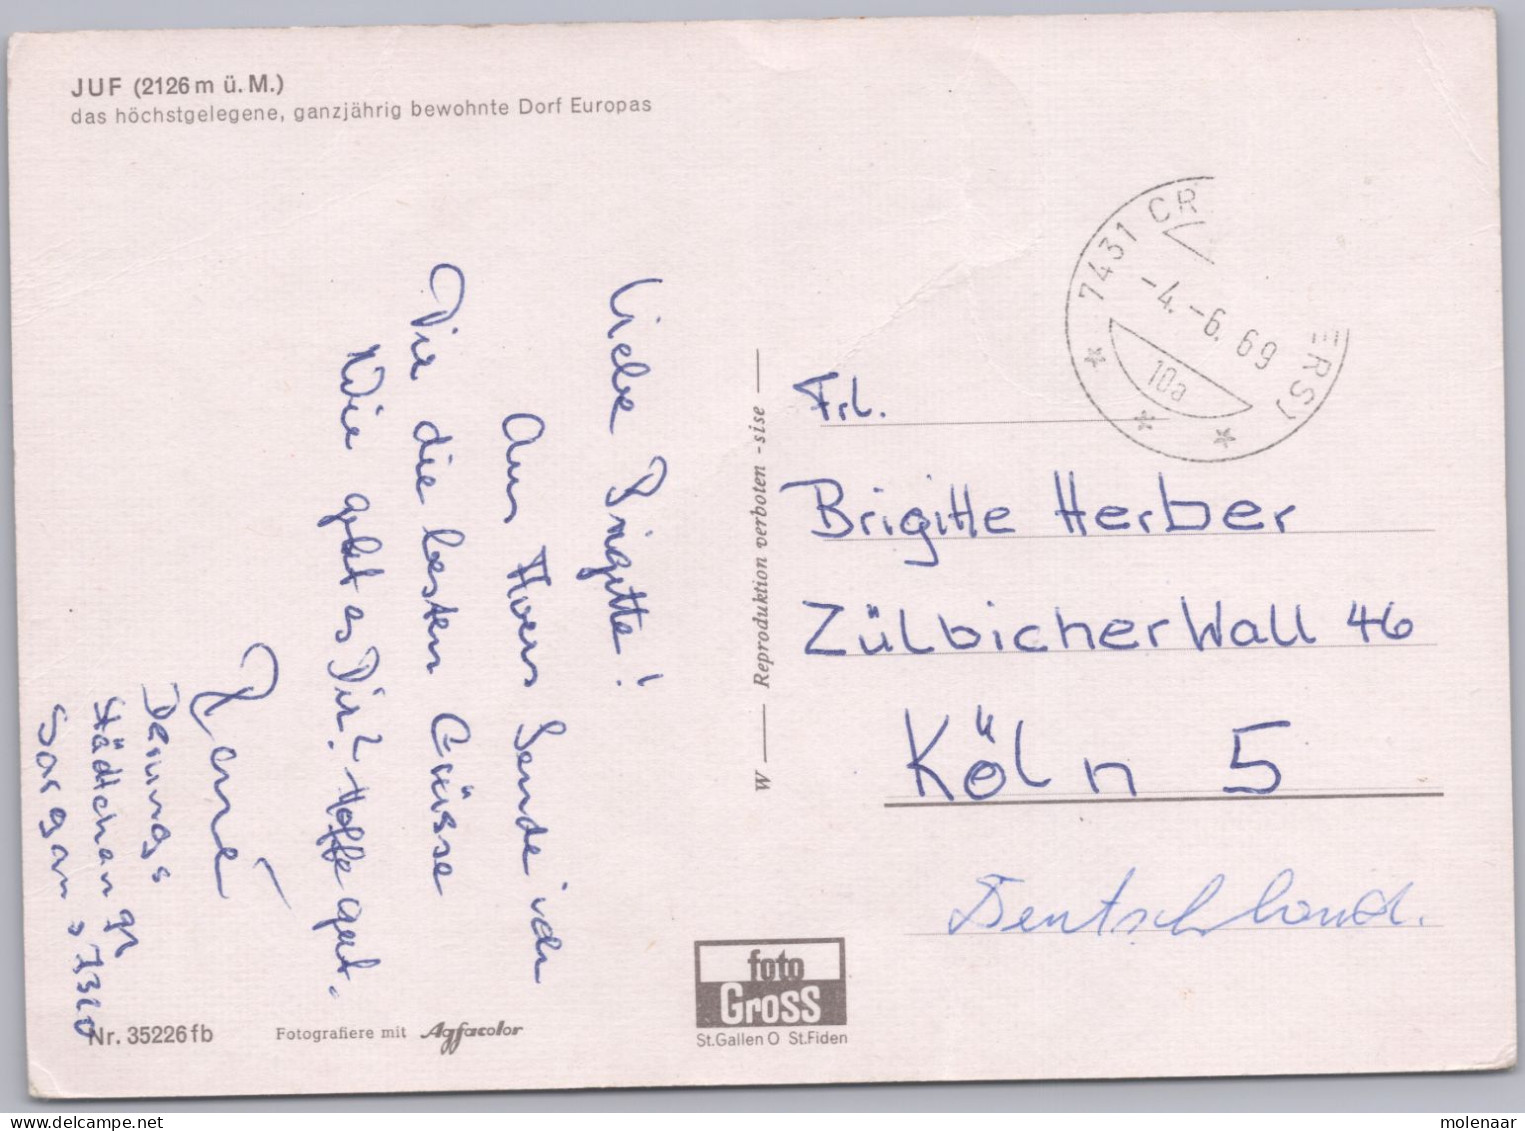 JUF (2126 m ü. M.)
das höchstgelegene, ganzjährig bewohnte Dorf Europas
Liebe Brigitte!
Aus Avers Sende ich
Dir die besten Grüsse
Wie geht es Dir? Hoffe gut.
René
Städtchen
Sargans 7320
W — Reproduktion verboten - sise —
7431 CR
ERS)
-4.-6.69
10a
Frl.
Brigitte Herber
Zülbicher Wall 46
Köln 5
Deutschland.
foto
Gross
St.Gallen O St.Fiden
Nr. 35226 fb
Fotografiere mit Agfacolor
molenaar